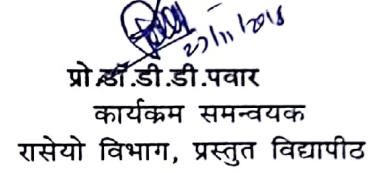 27/11/2018
प्रो.डॉ.डी.डी.पवार
कार्यकम समन्वयक
रासेयो विभाग, प्रस्तुत विद्यापीठ